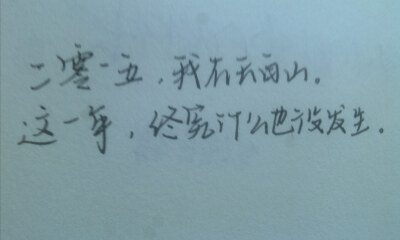 二零一五，我在云南山。
这一年，终究什么也没发生。